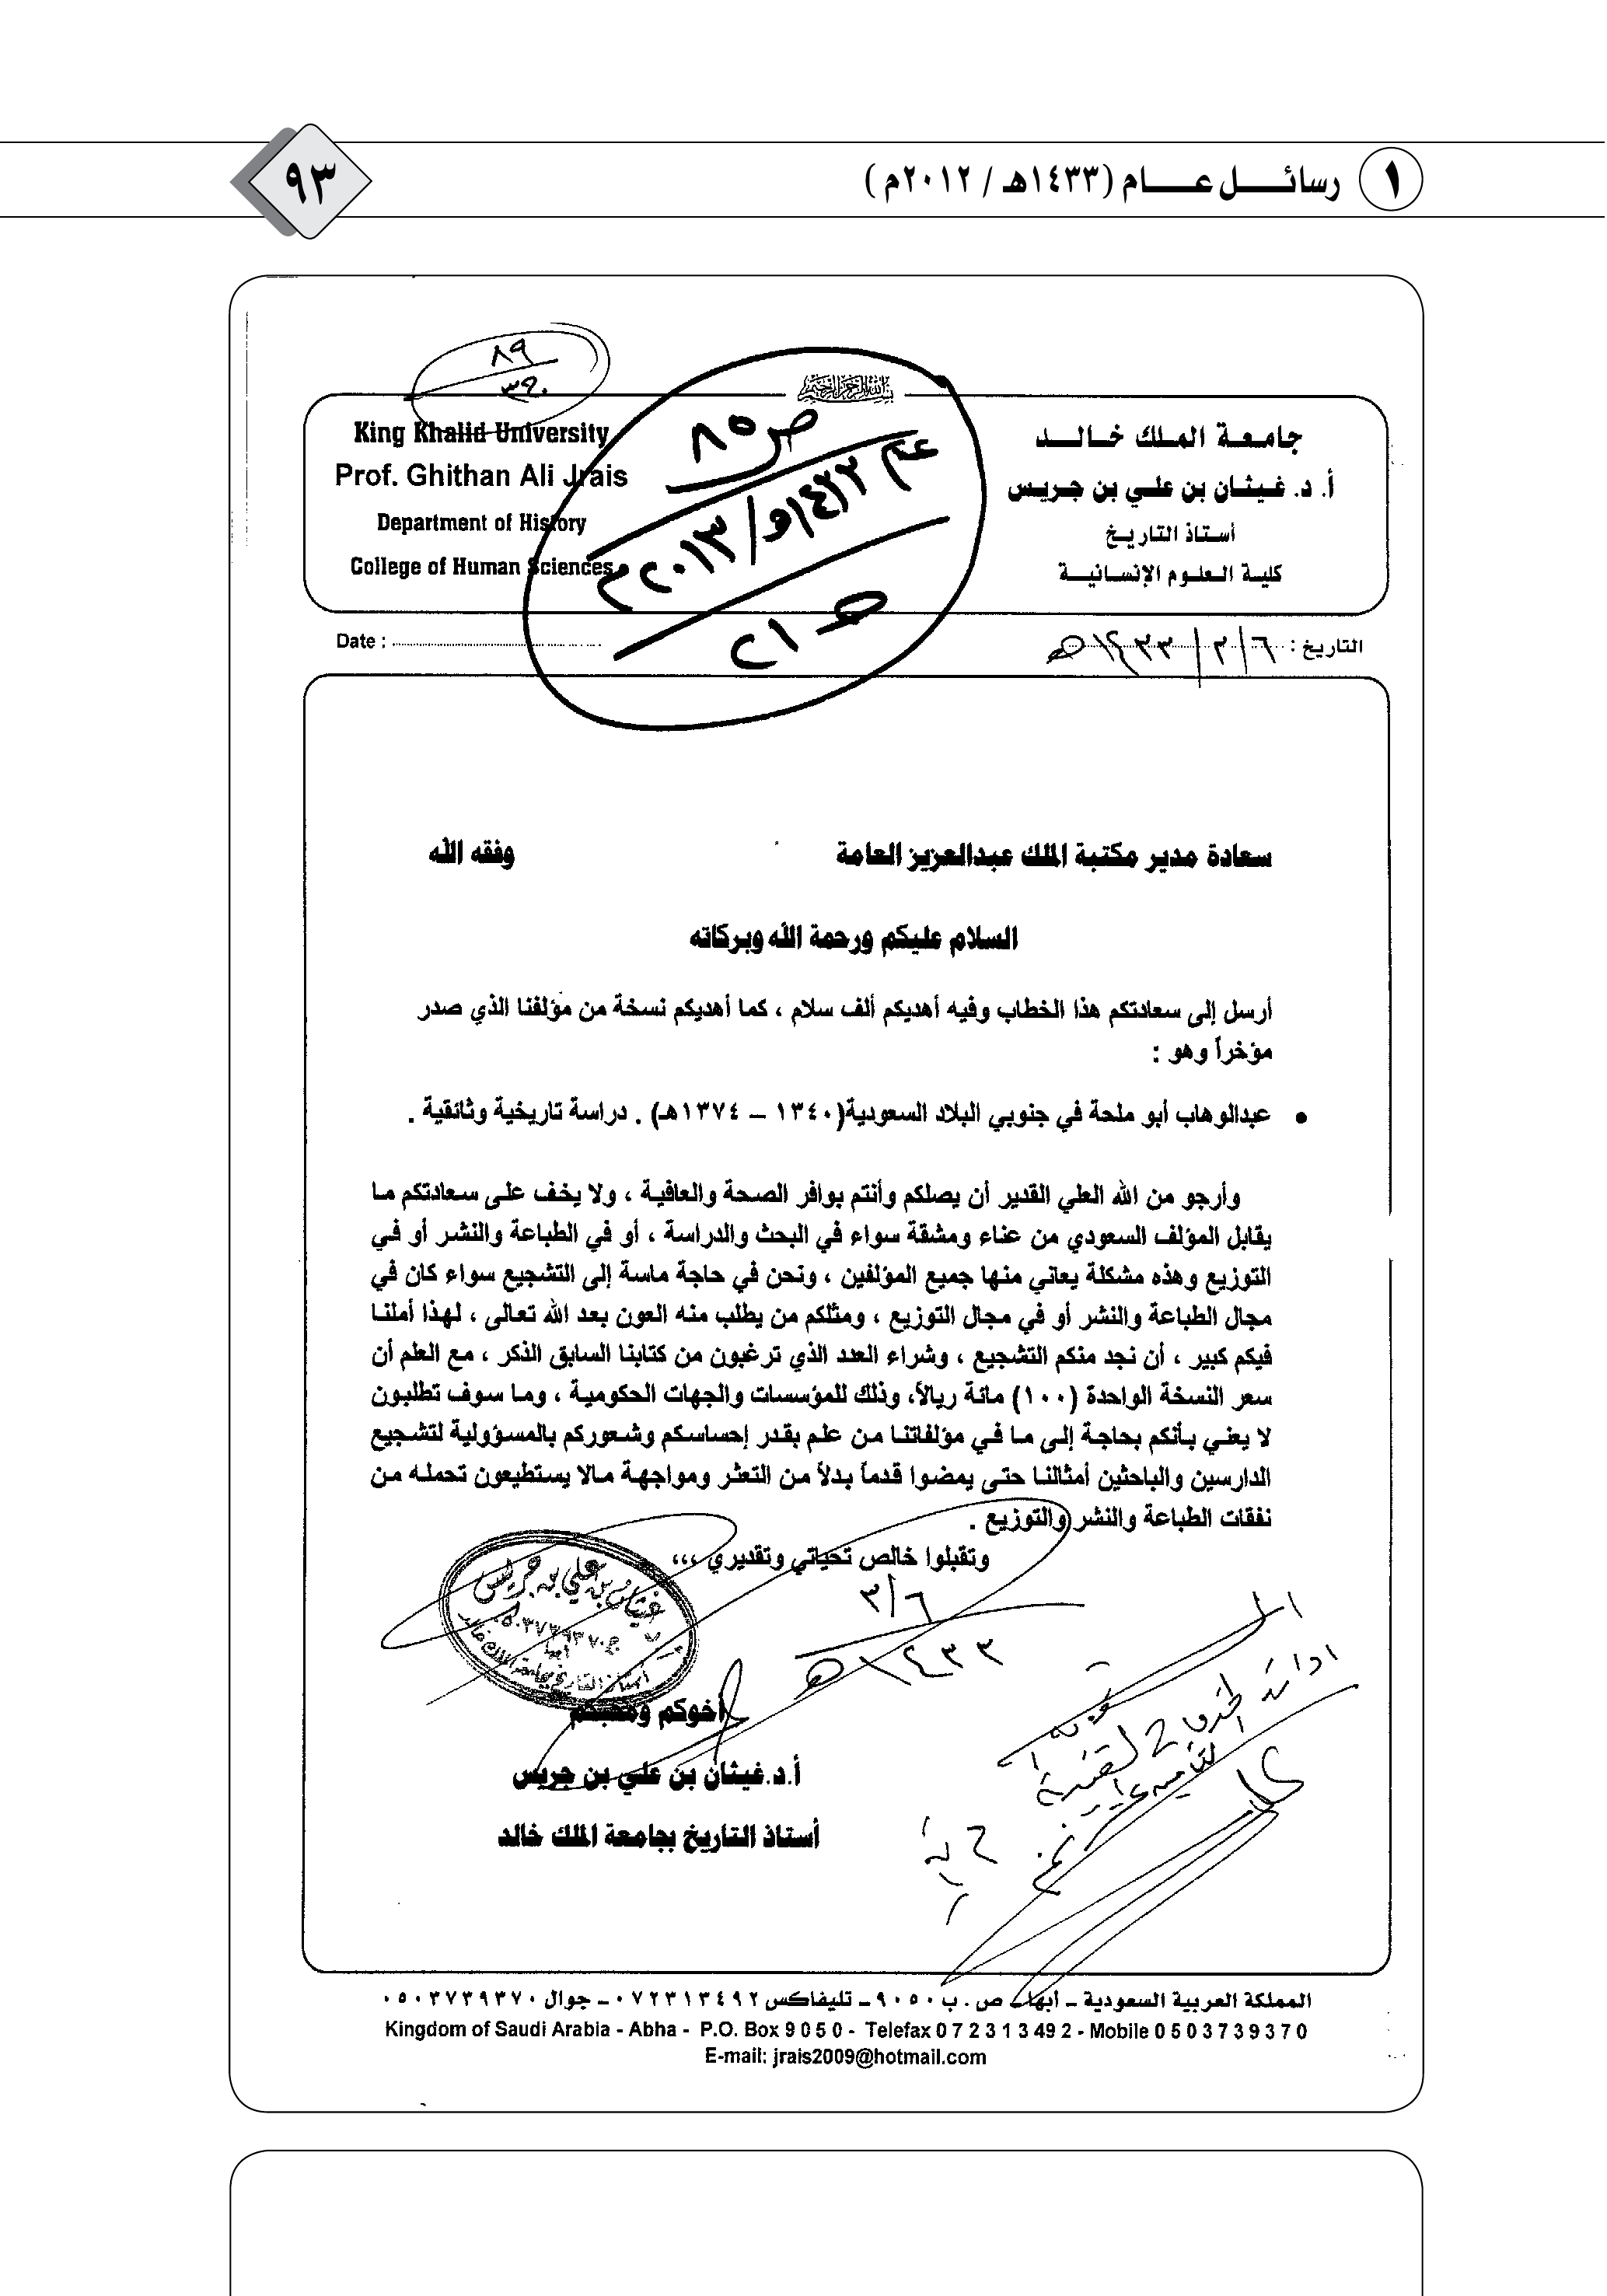 ١ رسائل عام (١٤٣٣هـ / ٢٠١٢م)
٩٣
٨٩
٣٩٠
بسم الله الرحمن الرحيم
جامعة الملك خالد
أ. د. غيثان بن علي بن جريس
أستاذ التاريخ
كلية العلوم الإنسانية
King Khalid University
Prof. Ghithan Ali Jrais
Department of History
College of Human Sciences
ص ٨٥
٢١ هـ
التاريخ : ٦/٣/١٤٣٣هـ
Date :
سعادة مدير مكتبة الملك عبدالعزيز العامة وفقه الله
السلام عليكم ورحمة الله وبركاته
أرسل إلى سعادتكم هذا الخطاب وفيه أهديكم ألف سلام ، كما أهديكم نسخة من مؤلفنا الذي صدر
مؤخراً وهو :
• عبدالوهاب أبو ملحة في جنوبي البلاد السعودية(١٣٤٠ – ١٣٧٤هـ) . دراسة تاريخية وثائقية .
وأرجو من الله العلي القدير أن يصلكم وأنتم بوافر الصحة والعافية ، ولا يخف على سعادتكم ما
يقابل المؤلف السعودي من عناء ومشقة سواء في البحث والدراسة ، أو في الطباعة والنشر أو في
التوزيع وهذه مشكلة يعاني منها جميع المؤلفين ، ونحن في حاجة ماسة إلى التشجيع سواء كان في
مجال الطباعة والنشر أو في مجال التوزيع ، ومثلكم من يطلب منه العون بعد الله تعالى ، لهذا أملنا
فيكم كبير ، أن نجد منكم التشجيع ، وشراء العدد الذي ترغبون من كتابنا السابق الذكر ، مع العلم أن
سعر النسخة الواحدة (١٠٠) مائة ريالاً، وذلك للمؤسسات والجهات الحكومية ، وما سوف تطلبون
لا يعني بأنكم بحاجة إلى ما في مؤلفاتنا من علم بقدر إحساسكم وشعوركم بالمسؤولية لتشجيع
الدارسين والباحثين أمثالنا حتى يمضوا قدماً بدلاً من التعثر ومواجهة مالا يستطيعون تحمله من
نفقات الطباعة والنشر والتوزيع .
وتقبلوا خالص تحياتي وتقديري ،،،
٦/٣
١٤٣٣هـ
غيثان بن علي بن جريس
أخوكم ومحبكم
أ.د.غيثان بن علي بن جريس
أستاذ التاريخ بجامعة الملك خالد
المملكة العربية السعودية – أبها – ص . ب ٩٠٥٠ – تليفاكس ٠٧٢٣١٣٤٩٢ – جوال ٠٥٠٣٧٣٩٣٧٠
Kingdom of Saudi Arabia - Abha - P.O. Box 9 0 5 0 - Telefax 0 7 2 3 1 3 49 2 - Mobile 0 5 0 3 7 3 9 3 7 0
E-mail: jrais2009@hotmail.com